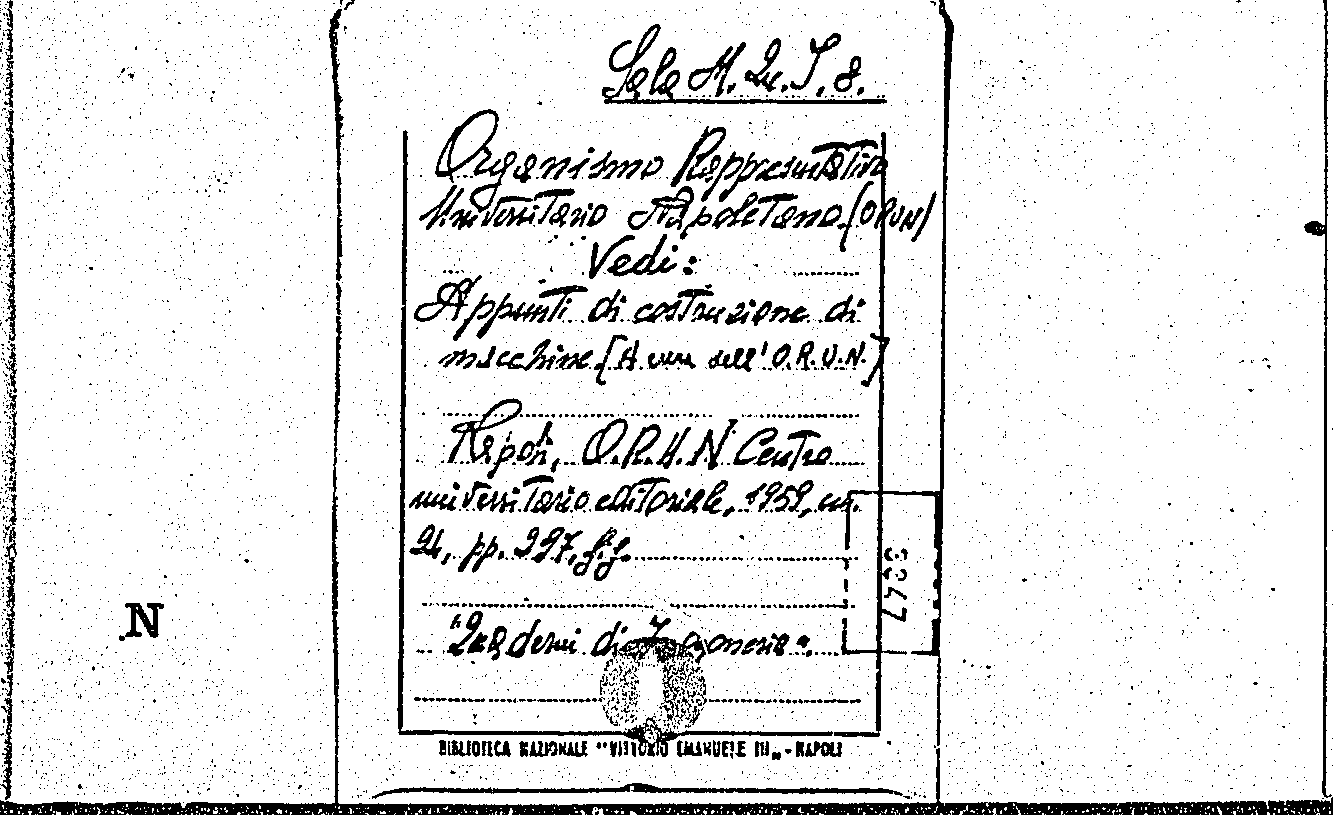 Sala M. Qu. I. 8.
Organismo Rappresentativo
Universitario Napoletano (ORUN)
Vedi:
Appunti di costruzione di
macchine [A cura dell' O.R.U.N.]
Napoli, O.R.U.N Centro
universitario editoriale, 1959, cm.
24, pp. 227, fig.
"Quaderni di
3247
N
BIBLIOTECA NAZIONALE "VITTORIO EMANUELE III„ - NAPOLI